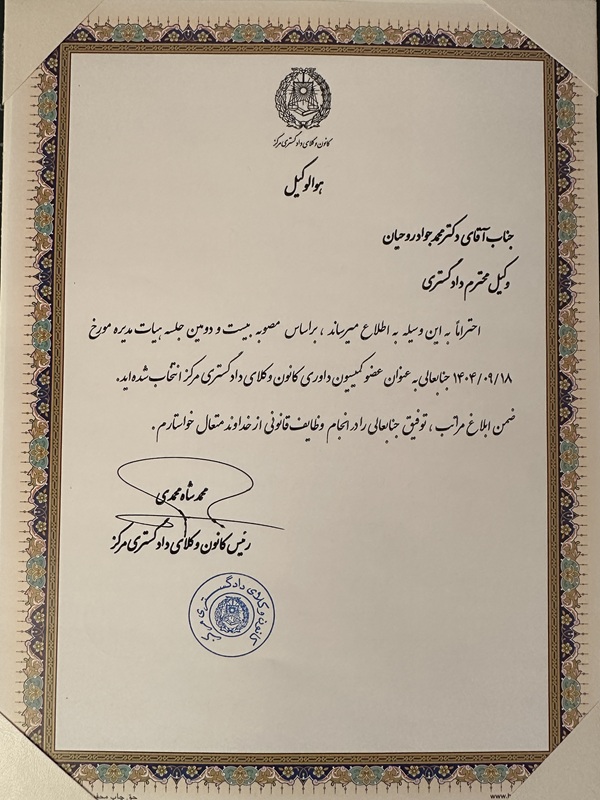 کانون وکلای دادگستری مرکز
هوالوکیل
جناب آقای دکتر محمد جواد روحیان
وکیل محترم دادگستری
احتراماً به این وسیله به اطلاع میرساند ، براساس مصوبه بیست و دومین جلسه هیات مدیره مورخ
۱۴۰۴/۰۹/۱۸ جنابعالی به عنوان عضو کمیسیون داوری کانون وکلای دادگستری مرکز انتخاب شده اید.
ضمن ابلاغ مراتب ، توفیق جنابعالی را در انجام وظایف قانونی از خداوند متعال خواستارم .
محمد شاه محمدی
رئیس کانون وکلای دادگستری مرکز
کانون وکلای دادگستری مرکز
حق چاپ
www.